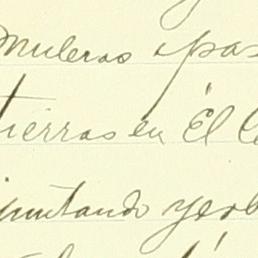 muleros a pas
tierras en El C
juntando yerb